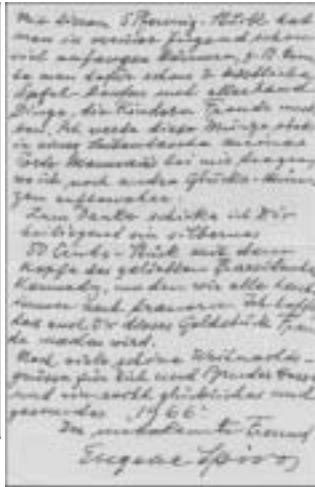 Mit diesem 5 Pfennig-Stück hat
man in meiner Jugend schon
viel anfangen können, z.B. konn-
te man dafür schon 2 köstliche
Äpfel kaufen und allerhand
Dinge, die Kindern Freude mach-
ten. Ich werde diese Münze stets
in einer Seitentasche meines
bei mir tragen,
wo ich noch andre Glücks-Mün-
zen aufbewahre.
Zum Danke schicke ich Dir
beiliegend ein silbernes
50 Cents-Stück mit dem
Kopfe des geliebten Präsidenten
Kennedy, um den wir alle heute
immer noch trauern. Ich hoffe,
das auch Dir dieses Geldstück Freu-
de machen wird.
Noch viele schöne Weihnachts-
grüsse für Dich und Bruder
und ein recht glückliches und
gesundes 1966
Dein unbekannter Freund
Eugene Spiro